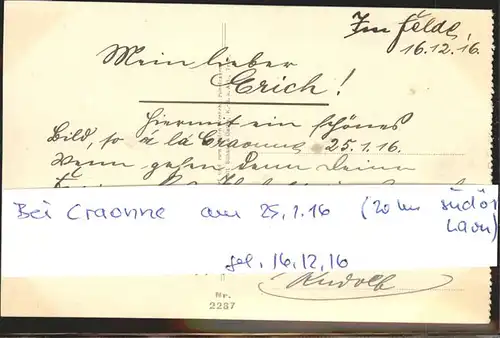 Im Felde,
16.12.16.
Mein lieber
Erich!
Hiermit ein schönes
Bild, so à la Craonne 25.1.16.
Wenn gehen denn Deine
Bei Craonne am 25.1.16 (20 km südös
Laon)
gel. 16.12.16
Rudolf
Nr.
2287